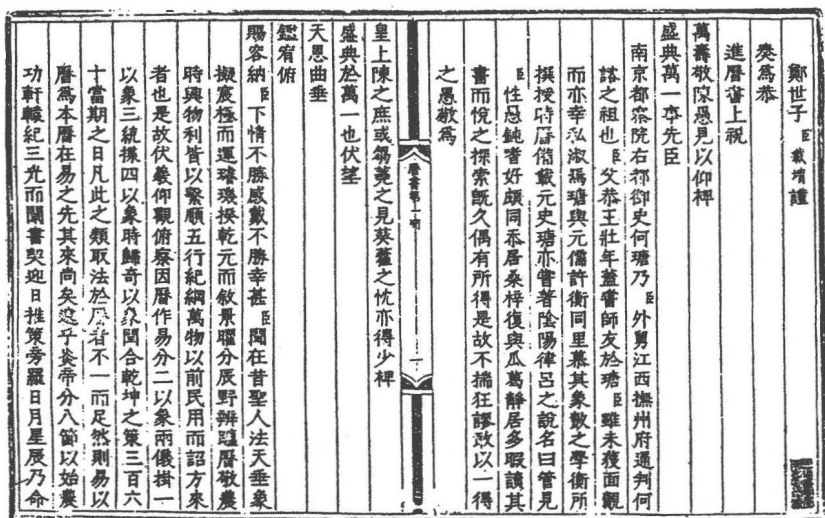 鄭世子臣載堉謹
奏為恭
進曆書上祝
萬壽敬陳愚見以仰裨
盛典萬一事先臣
南京都察院右都御史何瑭乃臣外舅江西撫州府通判何
諮之祖也臣父恭王壯年蓋嘗師友於瑭臣雖未獲面覿
而亦幸私淑焉瑭與元儒許衡同里慕其象數之學衡所
撰授時曆備載元史瑭亦嘗著陰陽律呂之說名曰管見
臣性愚鈍嗜好頗同忝居桑梓復與瓜葛靜居多暇讀其
書而悅之探索既久偶有所得是故不揣狂謬敢以一得
之愚敬為
曆書第一冊
一
皇上陳之庶或芻蕘之見葵藿之忱亦得少裨
盛典於萬一也伏望
天恩曲垂
鑑宥俯
賜容納臣下情不勝感戴不勝幸甚臣聞在昔聖人法天垂象
擬宸極而運璿璣揆乾元而敘景曜分辰野辨躔曆敬農
時興物利皆以繫順五行紀綱萬物以前民用而詔方來
者也是故伏羲仰觀俯察因曆作易分二以象兩儀掛一
以象三統揲四以象時歸奇以象閏合乾坤之策三百六
十當期之日凡此之類取法於曆者不一而足然則易以
曆為本曆在易之先其來尚矣迨乎炎帝分八節以始農
功軒轅紀三光而闡書契迎日推策旁羅日月星辰乃命